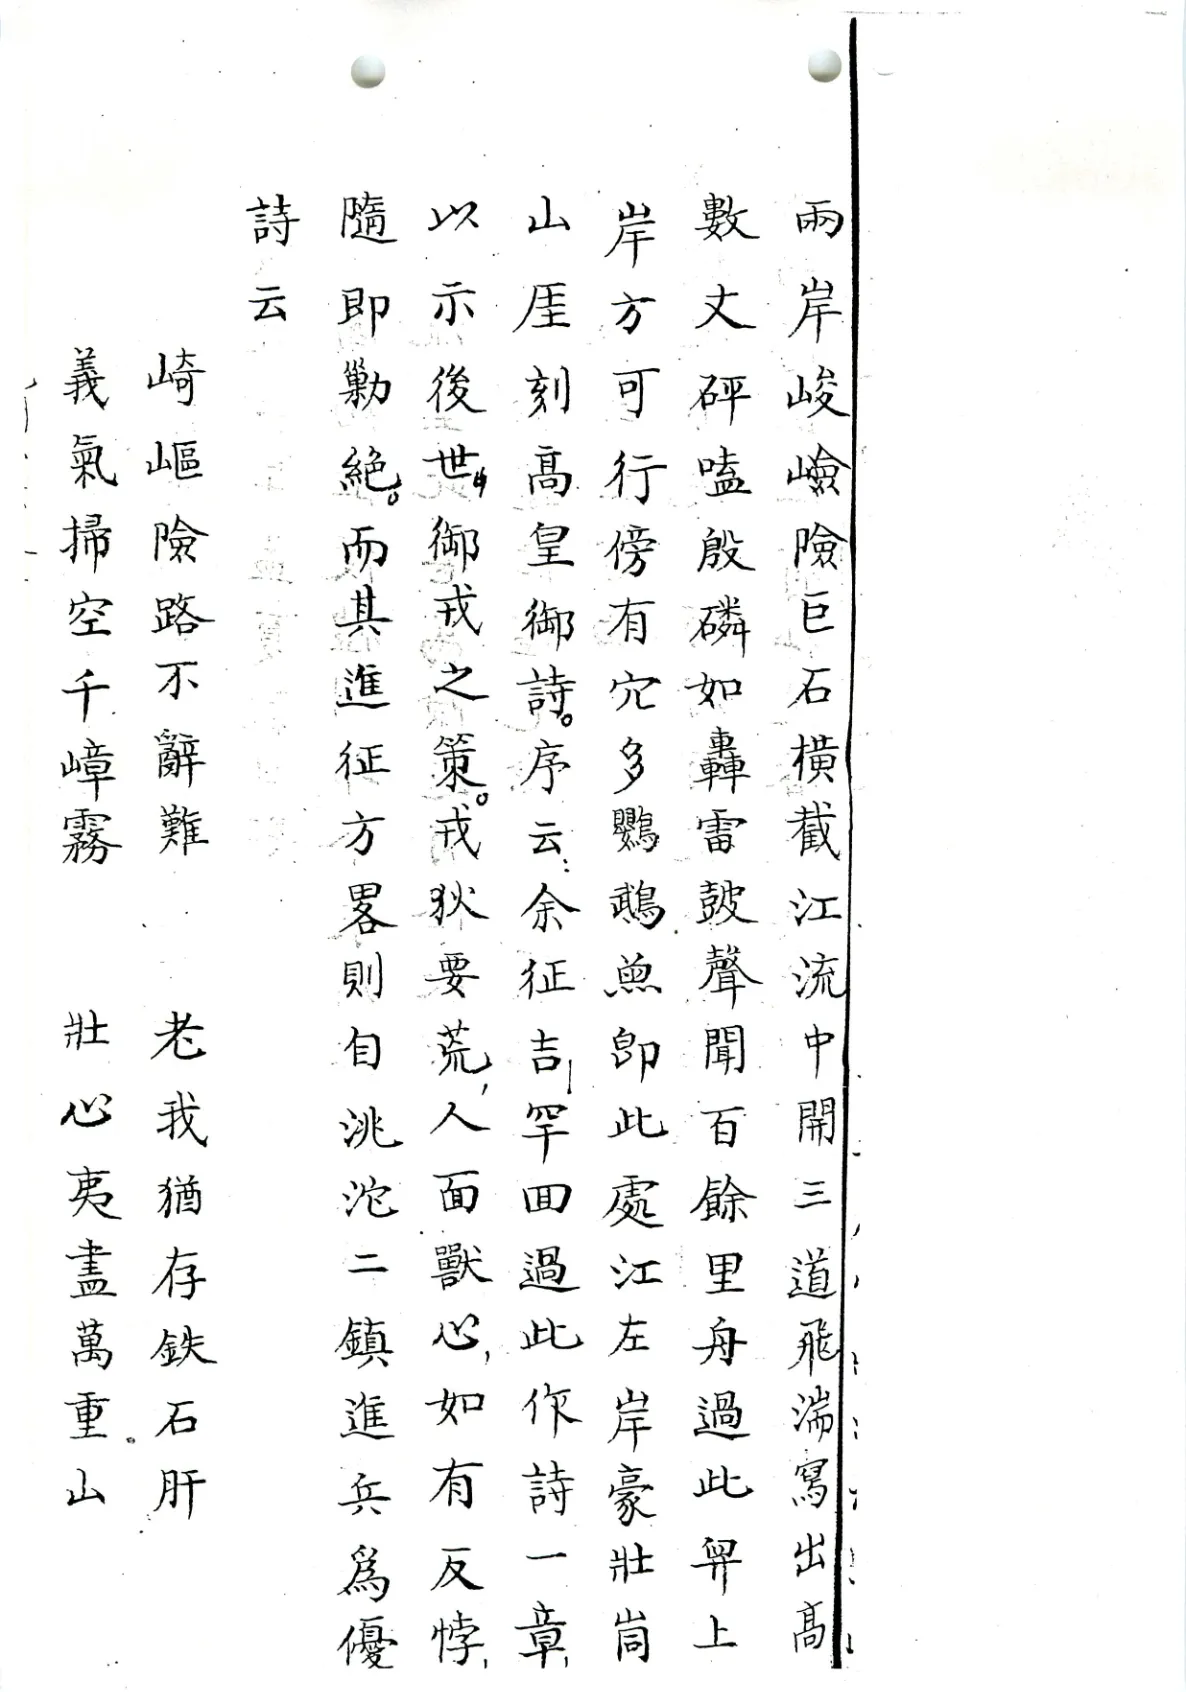 兩岸峻嶮險巨石橫截江流中開三道飛湍寫出高
數丈砰嗑殷磷如轟雷皷聲聞百餘里舟過此舁上
岸方可行傍有穴多鸚鵡魚卽此處江左岸豪壯峝
山厓刻高皇御詩。序云：余征吉罕回過此作詩一章，
以示後世御戎之策。戎狄要荒，人面獸心，如有反悖，
隨即勦絕。而其進征方畧則自洮沱二鎮進兵爲優
詩云
崎嶇險路不辭難　老我猶存鉄石肝
義氣掃空千嶂霧　壯心夷盡萬重山